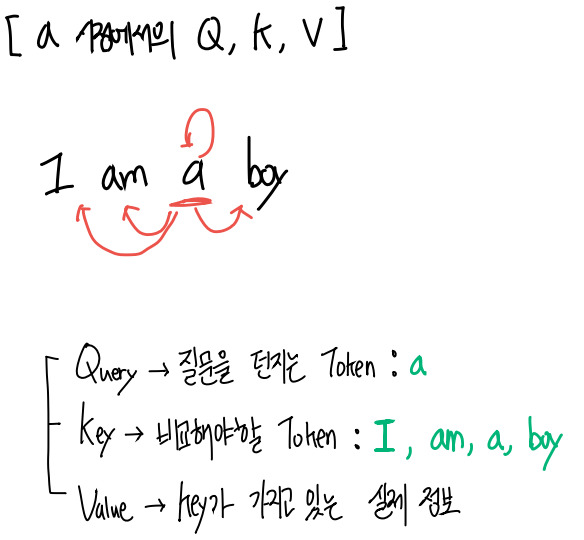 [ a 시점에서의 Q, K, V ]
I am a boy
Query → 질문을 던지는 Token : a
Key → 비교해야할 Token : I, am, a, boy
Value → key가 가지고 있는 실제 정보